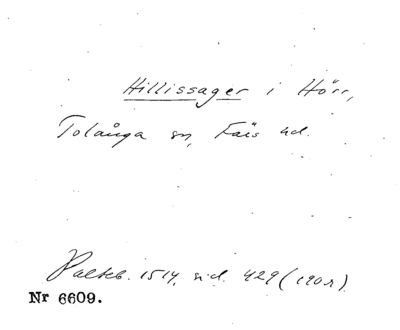 Hillissager i Hörr,
Tolånga sn, Färs hd.
Palteb. 1514, sid. 429 (190r).
Nr 6609.